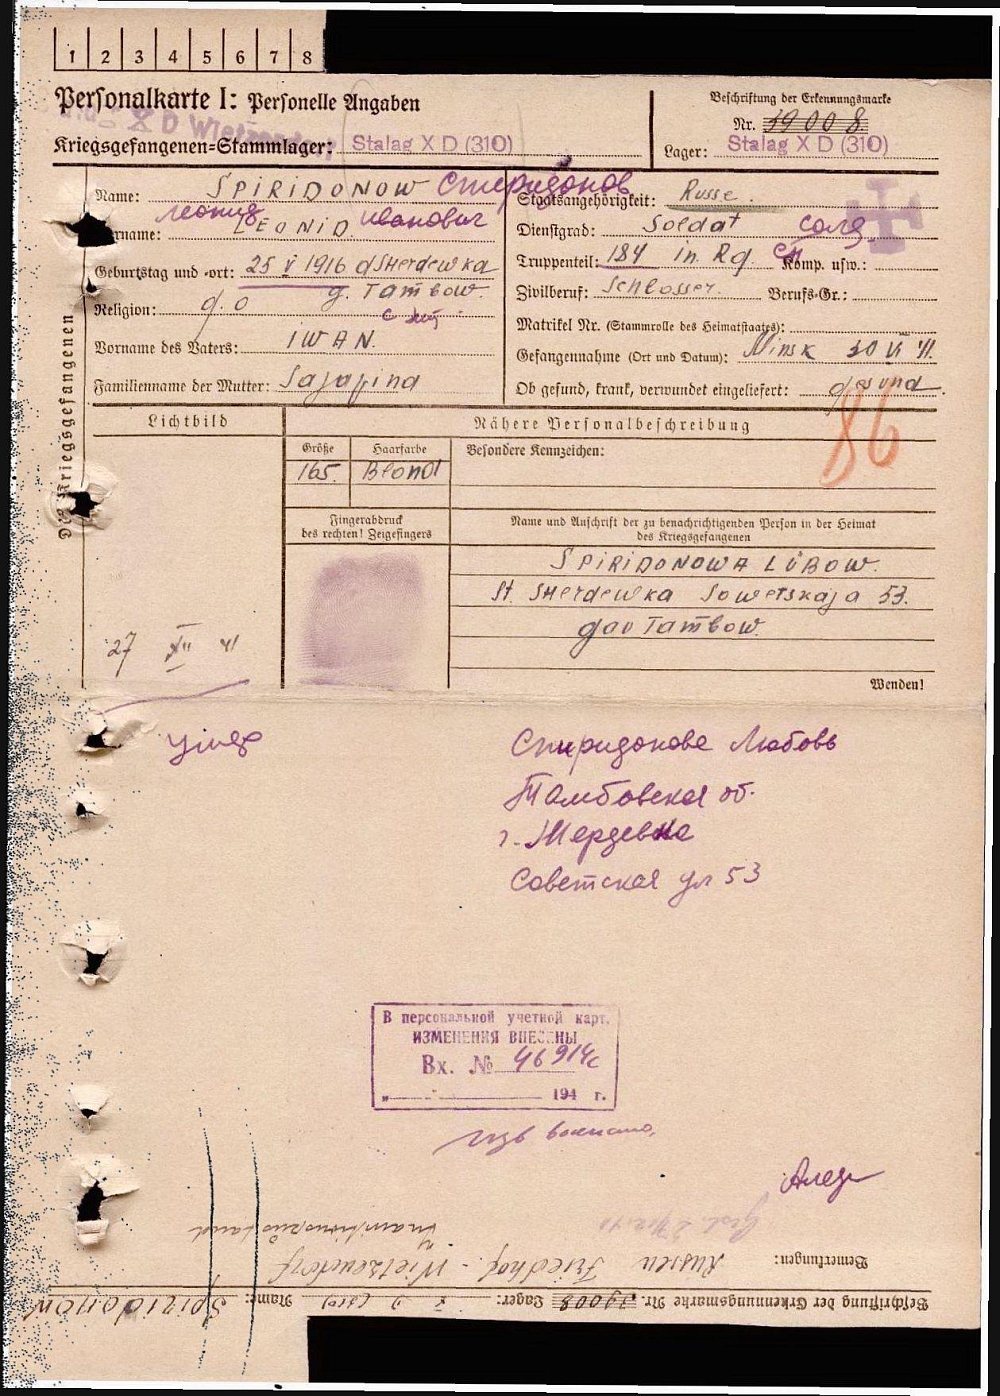 1 2 3 4 5 6 7 8
Personalkarte I: Personelle Angaben
Kriegsgefangenen-Stammlager: Stalag X D (310)
Beschriftung der Erkennungsmarke
Nr. 39008
Lager: Stalag X D (310)
X D Wietzendorf
Des Kriegsgefangenen
Name: SPIRIDONOW Спиридонов
Леонид Иванович
Vorname: LEONID
Geburtstag und -ort: 25 V 1916 dSHerdewka
g. Tambow.
Religion: g. o
Vorname des Vaters: IWAN.
Familienname der Mutter:
Staatsangehörigkeit: Russe.
Dienstgrad: Soldat солд
Truppenteil: 184 in. Rg сп Komp. usw.:
Zivilberuf: Schlosser. Berufs-Gr.:
Matrikel Nr. (Stammrolle des Heimatstaates):
Gefangennahme (Ort und Datum): Minsk 30 VI 41.
Ob gesund, krank, verwundet eingeliefert: gesund
86
Lichtbild
Nähere Personalbeschreibung
Größe Haarfarbe Besondere Kennzeichen:
165. Blond
Fingerabdruck
des rechten! Zeigefingers
Name und Anschrift der zu benachrichtigenden Person in der Heimat
des Kriegsgefangenen
SPIRIDONOWA LÜBOW.
St. SHerdewka Sowetskaja 53.
gou Tambow.
27 XII 41
Wenden!
умер
Спиридонова Любовь
Тамбовская об.
г. Жердевка
Советская ул 53
В персональной учетной карт.
ИЗМЕНЕНИЯ ВНЕСЕНЫ
Вх. № 46914с
„ 194 г.
Bemerkungen: Russen Friedhof - Wietzendorf
Beschriftung der Erkennungsmarke Nr. 39008 Lager: X D (310) Name: Spiridonow